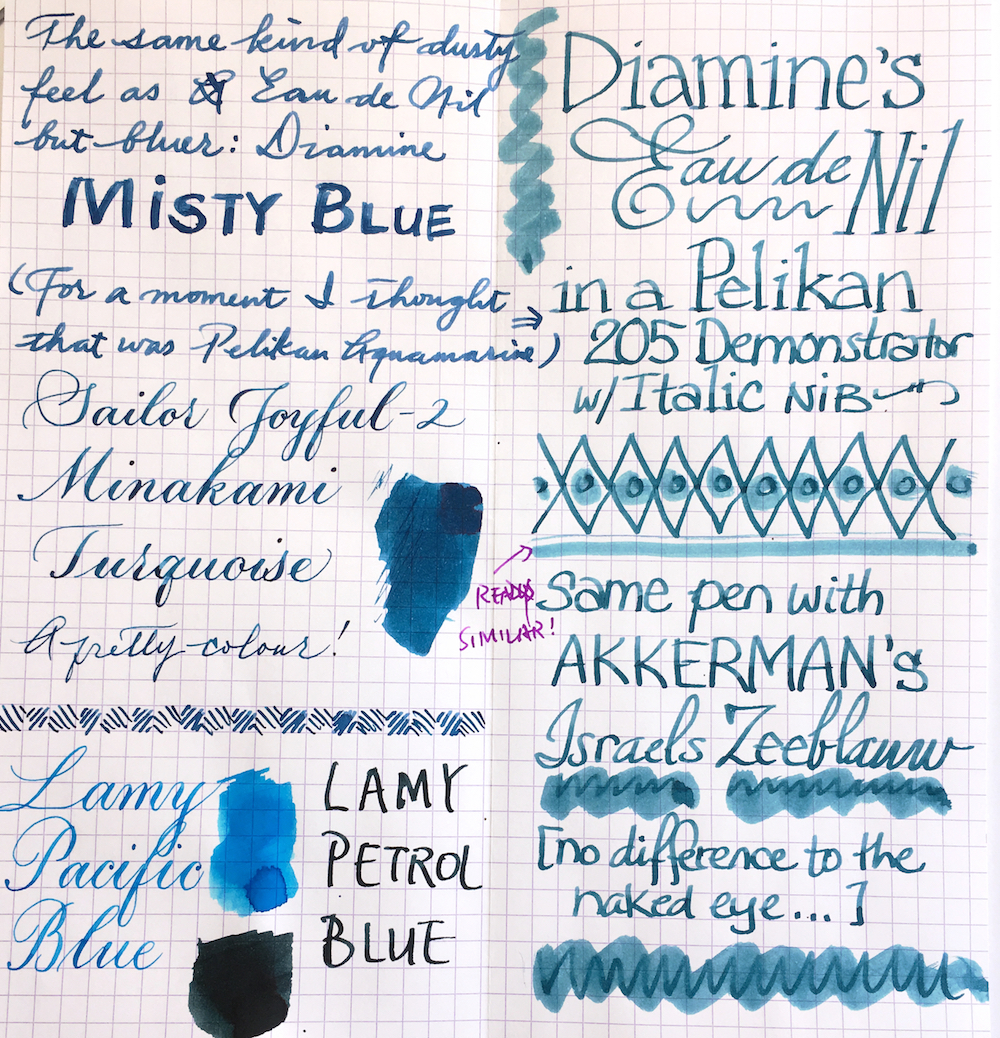 The same kind of dusty
feel as Eau de Nil
but bluer: Diamine
MiSTY BLUE
(For a moment I thought
that was Pelikan Aquamarine)
Sailor Joyful-2
Minakami
Turquoise
A pretty colour!
Lamy
Pacific
Blue
LAMY
PETROL
BLUE
Diamine's
Eau de Nil
in a Pelikan
205 Demonstrator
w/ Italic NiB
READS
SIMILAR!
Same pen with
AKKERMAN's
Israels Zeeblauw
[no difference to the
naked eye...]